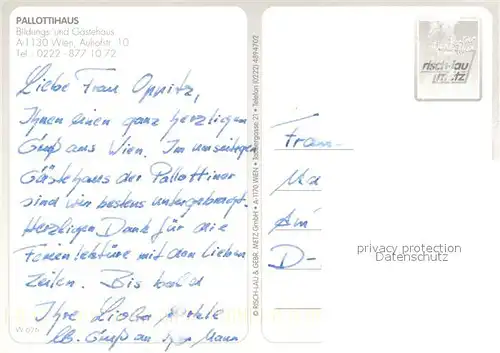 PALLOTTIHAUS
Bildungs- und Gästehaus
A-1130 Wien, Auhofstr. 10
Tel.: 0222 - 877 10 72
Liebe Frau Oppitz,
Ihnen einen ganz herzlichen
Gruß aus Wien. Im umseitigen
Gästehaus der Pallottiner
sind wir bestens untergebracht.
Herzlichen Dank für die
Ferienlektüre mit den lieben
Zeilen. Bis bald
Ihre
lb. Gruß an Mann
W 626
© RISCH-LAU & GEBR. METZ GmbH • A-1170 WIEN • 21 • Telefon (0222) 4894702
risch-lau
metz
Frau
D-
privacy protection
Datenschutz